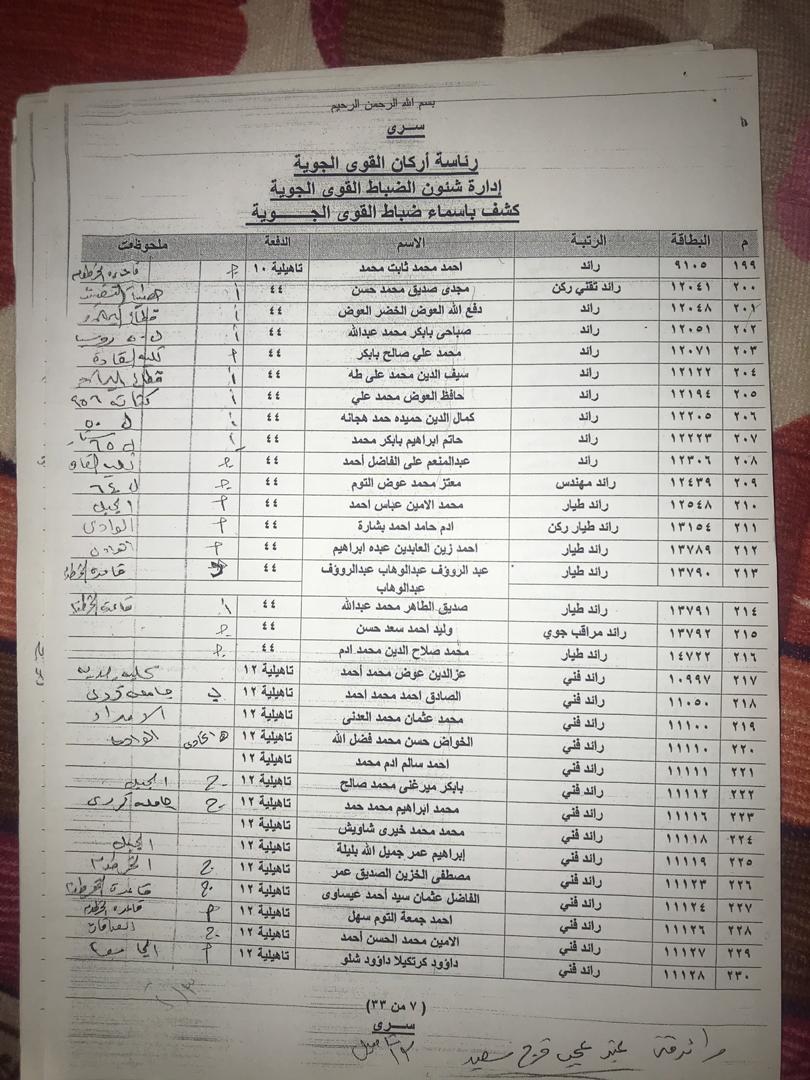 بسم الله الرحمن الرحيم
سرى
رئاسة أركان القوى الجوية
إدارة شئون الضباط القوى الجوية
كشف باسماء ضباط القوى الجوية
م البطاقة الرتبة الاسم الدفعة ملحوظات
١٩٩ ٩١٠٥ رائد احمد محمد ثابت محمد تاهيلية ١٠ ج قاعدة الخرطوم
٢٠٠ ١٢٠٤١ رائد تقني ركن مجدى صديق محمد حسن ٤٤ أ
٢٠١ ١٢٠٤٨ رائد دفع الله العوض الخضر العوض ٤٤ أ
٢٠٢ ١٢٠٥١ رائد صباحى بابكر محمد عبدالله ٤٤ أ
٢٠٣ ١٢٠٧١ رائد محمد علي صالح بابكر ٤٤ م كلية القادة
٢٠٤ ١٢١٢٢ رائد سيف الدين محمد على طه ٤٤ أ
٢٠٥ ١٢١٩٤ رائد حافظ العوض محمد علي ٤٤ أ
٢٠٦ ١٢٢٠٥ رائد كمال الدين حميده حمد هجانه ٤٤ أ ل ٥٠
٢٠٧ ١٢٢٢٣ رائد حاتم ابراهيم بابكر محمد ٤٤ أ
٢٠٨ ١٢٣٠٦ رائد عبدالمنعم على الفاضل أحمد ٤٤ ج
٢٠٩ ١٢٤٣٩ رائد مهندس معتز محمد عوض التوم ٤٤ ج ل ٦٤
٢١٠ ١٢٥٤٨ رائد طيار محمد الامين عباس احمد ٤٤ م الجبل
٢١١ ١٣١٥٤ رائد طيار ركن ادم حامد احمد بشارة ٤٤ م الوادى
٢١٢ ١٣٧٨٩ رائد طيار احمد زين العابدين عبده ابراهيم ٤٤ م
٢١٣ ١٣٧٩٠ رائد طيار عبد الروؤف عبدالوهاب عبدالروؤف ٤٤ قاعدة الخرطوم
عبدالوهاب
٢١٤ ١٣٧٩١ رائد طيار صديق الطاهر محمد عبدالله ٤٤ أ قاعدة الخرطوم
٢١٥ ١٣٧٩٢ رائد مراقب جوي وليد احمد سعد حسن ٤٤ ج
٢١٦ ١٤٧٢٢ رائد طيار محمد صلاح الدين محمد ادم ٤٤ ج
٢١٧ ١٠٩٩٧ رائد فني عزالدين عوض محمد أحمد تاهيلية ١٢
٢١٨ ١١٠٥٠ رائد فني الصادق احمد محمد احمد تاهيلية ١٢ جامعة كررى
٢١٩ ١١١٠٠ رائد فني محمد عثمان محمد العدنى تاهيلية ١٢ الامداد
٢٢٠ ١١١١٠ رائد فني الخواض حسن محمد فضل الله تاهيلية ١٢
٢٢١ ١١١١١ رائد فني احمد سالم ادم محمد تاهيلية ١٢
٢٢٢ ١١١١٢ رائد فني بابكر ميرغنى محمد صالح تاهيلية ١٢ ج الجبل
٢٢٣ ١١١١٦ رائد فني محمد ابراهيم محمد حمد تاهيلية ١٢ ج جامعة كررى
٢٢٤ ١١١١٨ رائد فني محمد محمد خيرى شاويش تاهيلية ١٢
٢٢٥ ١١١١٩ رائد فني إبراهيم عمر جميل الله بليلة تاهيلية ١٢ الجبل
٢٢٦ ١١١٢٣ رائد فني مصطفى الخزين الصديق عمر تاهيلية ١٢ ج الخرطوم
٢٢٧ ١١١٢٤ رائد فني الفاضل عثمان سيد أحمد عيساوى تاهيلية ١٢ ج قاعدة الخرطوم
٢٢٨ ١١١٢٦ رائد فني احمد جمعة التوم سهل تاهيلية ١٢ م قاعدة الخرطوم
٢٢٩ ١١١٢٧ رائد فني الامين محمد الحسن أحمد تاهيلية ١٢ ج
٢٣٠ ١١١٢٨ رائد فني داؤود كرتكيلا داؤود شلو تاهيلية ١٢ م
(٧ من ٣٣)
سرى